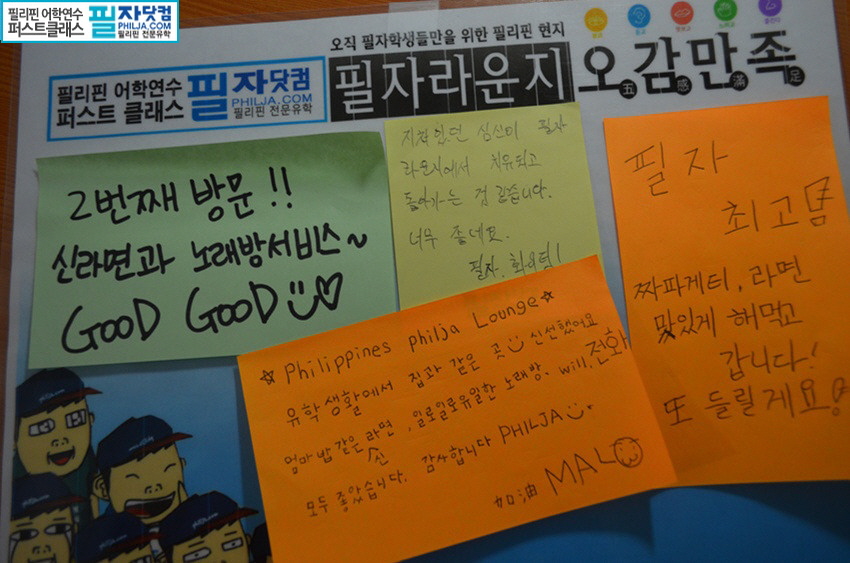 필리핀 어학연수
퍼스트클래스
필자닷컴
PHILJA.COM
필리핀 전문유학
오직 필자학생들만을 위한 필리핀 현지
필리핀 어학연수
퍼스트 클래스
필자닷컴
PHILJA.COM
필리핀 전문유학
필자라운지
오감만족
五感滿足
2번째 방문!!
신라면과 노래방서비스~
GOOD GOOD
지쳐있던 심신이 필자
라운지에서 치유되고
돌아가는 것 같습니다.
너무 좋네요.
필자, 화이팅!
필자
최고됨
짜파게티, 라면
맛있게 해먹고
갑니다!
또 들릴게요!
☆ Philippines philja Lounge☆
유학생활에서 집과 같은 곳 신선했어요
엄마 밥 같은 라면, 일로일로유일한 노래방, will, 전화
신
모두 좋았습니다. 감사합니다 PHILJA
加油 MALO
philja.com
philja.com
philja.com
philja.com
philja.com